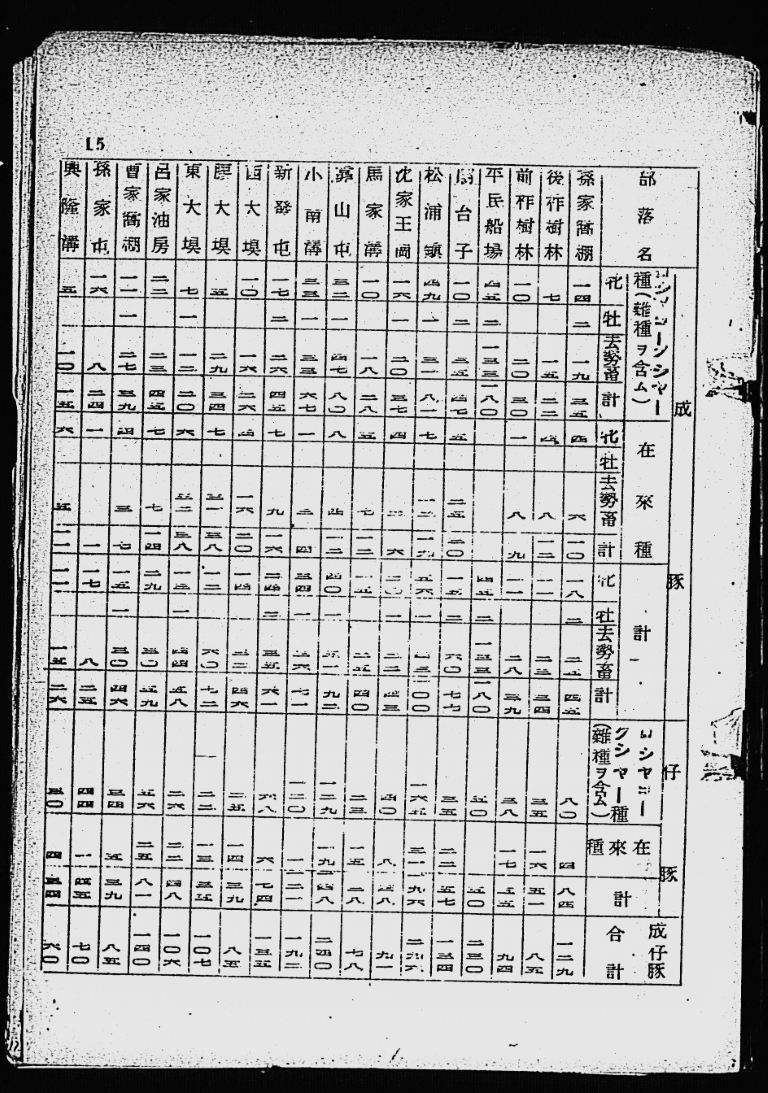 15
部落名 成豚 ロシヤヨークシャー種(雜種ヲ含ム) 牝 牡 去勢畜 計 在來種 牝 牡 去勢畜 計 計 牝 牡 去勢畜 計 仔豚 ロシヤヨークシャー種(雜種ヲ含ム) 在來種 計 成仔豚合計
孫家窩棚 一四 二 一九 三五 四 六 一〇 一八 二 二五 四五 八〇 四 八四 一二九
後柞樹林 七 一五 二二 四 八 一二 一一 二三 三四 三五 一六 五一 八五
前柞樹林 一〇 二〇 三〇 一 八 九 一一 二八 三九 三八 一七 五五 九四
平民船場 四五 二 一三三 一八〇 四五 二 一三三 一八〇 五〇 五〇 二三〇
台子 一〇 二 三五 四七 五 二五 三〇 一五 二 六〇 七七 三五 二二 五七 一三四
松浦鎮 四九 一 三一 八一 七 一二 一九 五六 一 四三 一〇〇 一六五 三一 一九六 二九六
沈家王崗 一六 一 二〇 三七 四 二 六 二〇 一 二二 四三 四〇 八 四八 九一
馬家溝 一〇 一八 二八 五 七 一二 一五 二五 四〇 二三 一五 三八 七八
山屯 三二 一 四七 八〇 八 四 一二 四〇 一 五一 九二 一二九 一九 一四八 二四〇
小南溝 三三 一 三三 六七 一 三 四 三四 一 三六 七一 一二〇 一 一二一 一九二
新發屯 一七 二 二六 四五 七 九 一六 二四 二 三五 六一 六八 六 七四 一三五
西大垻 一〇 一六 二六 四 一六 二〇 一四 三二 四六 二五 一四 三九 八五
大垻 五 二九 三四 七 三一 三八 一二 六〇 七二 二二 一三 三五 一〇七
東大垻 七 一 一二 二〇 六 三二 三八 一三 一 四四 五八 二六 二二 四八 一〇六
呂家油房 二二 二三 四五 七 七 一四 二九 三〇 五九 五六 二五 八一 一四〇
曹家窩棚 一一 一 二七 三九 四 三 七 一五 一 三〇 四六 三四 五 三九 八五
孫家屯 一六 八 二四 一 一 一七 八 二五 四四 一 四五 七〇
興隆溝 五 一〇 一五 六 五 一一 一一 一五 二六 三〇 四 三四 六〇